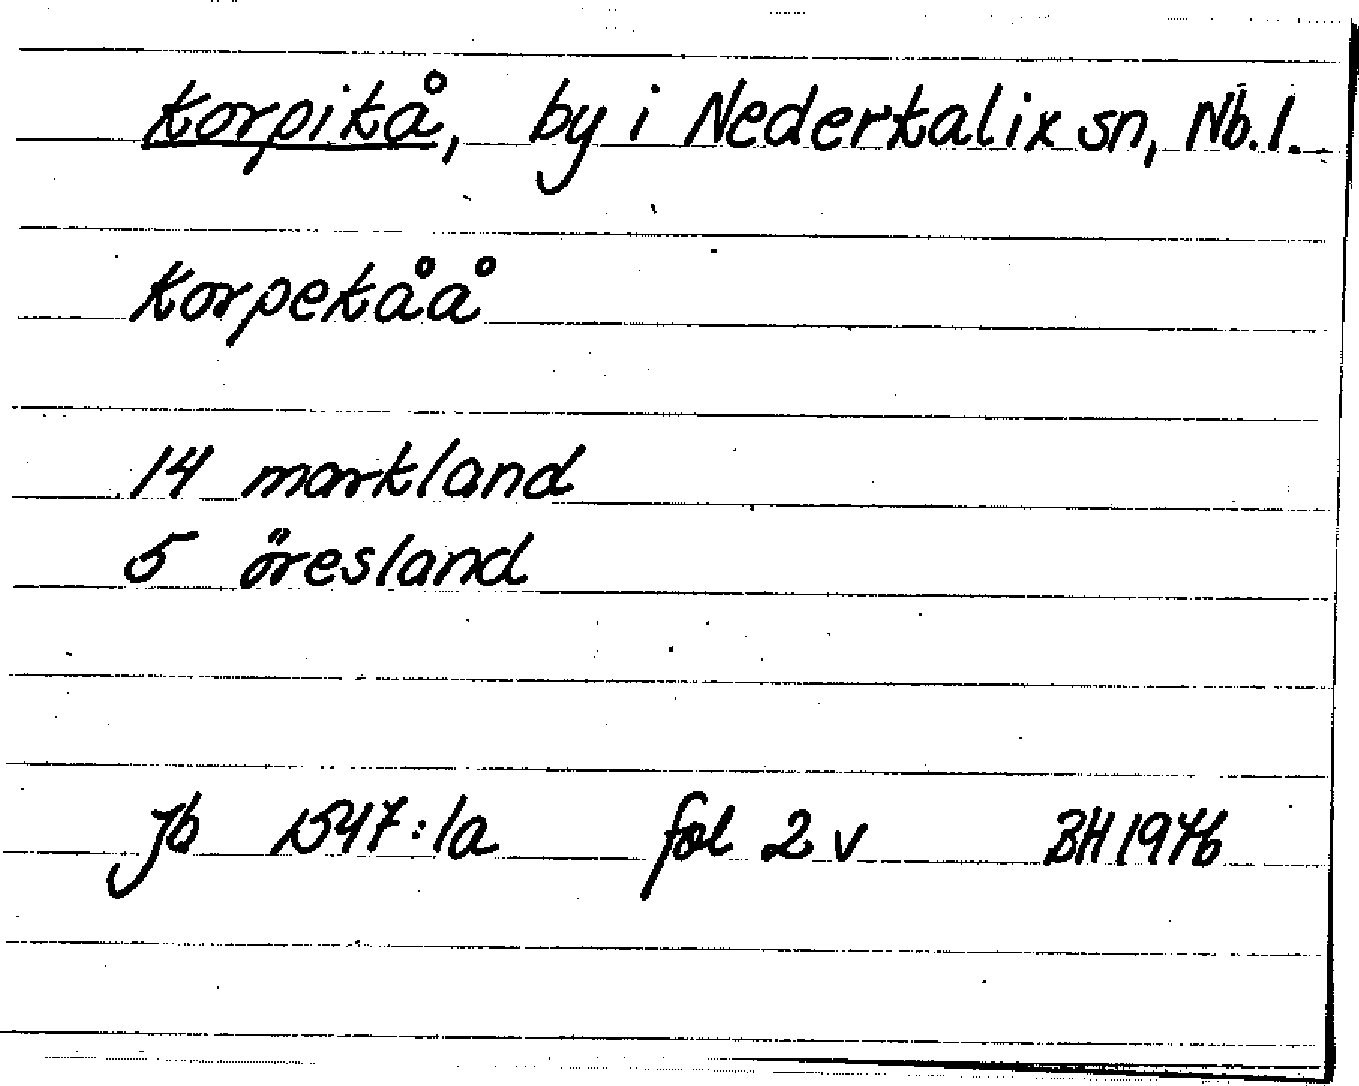 Korpikå, by i Nederkalix sn, Nb.l.
Korpekåå
14 markland
5 öresland
Jb 1547:1a fol 2 v BH 1976